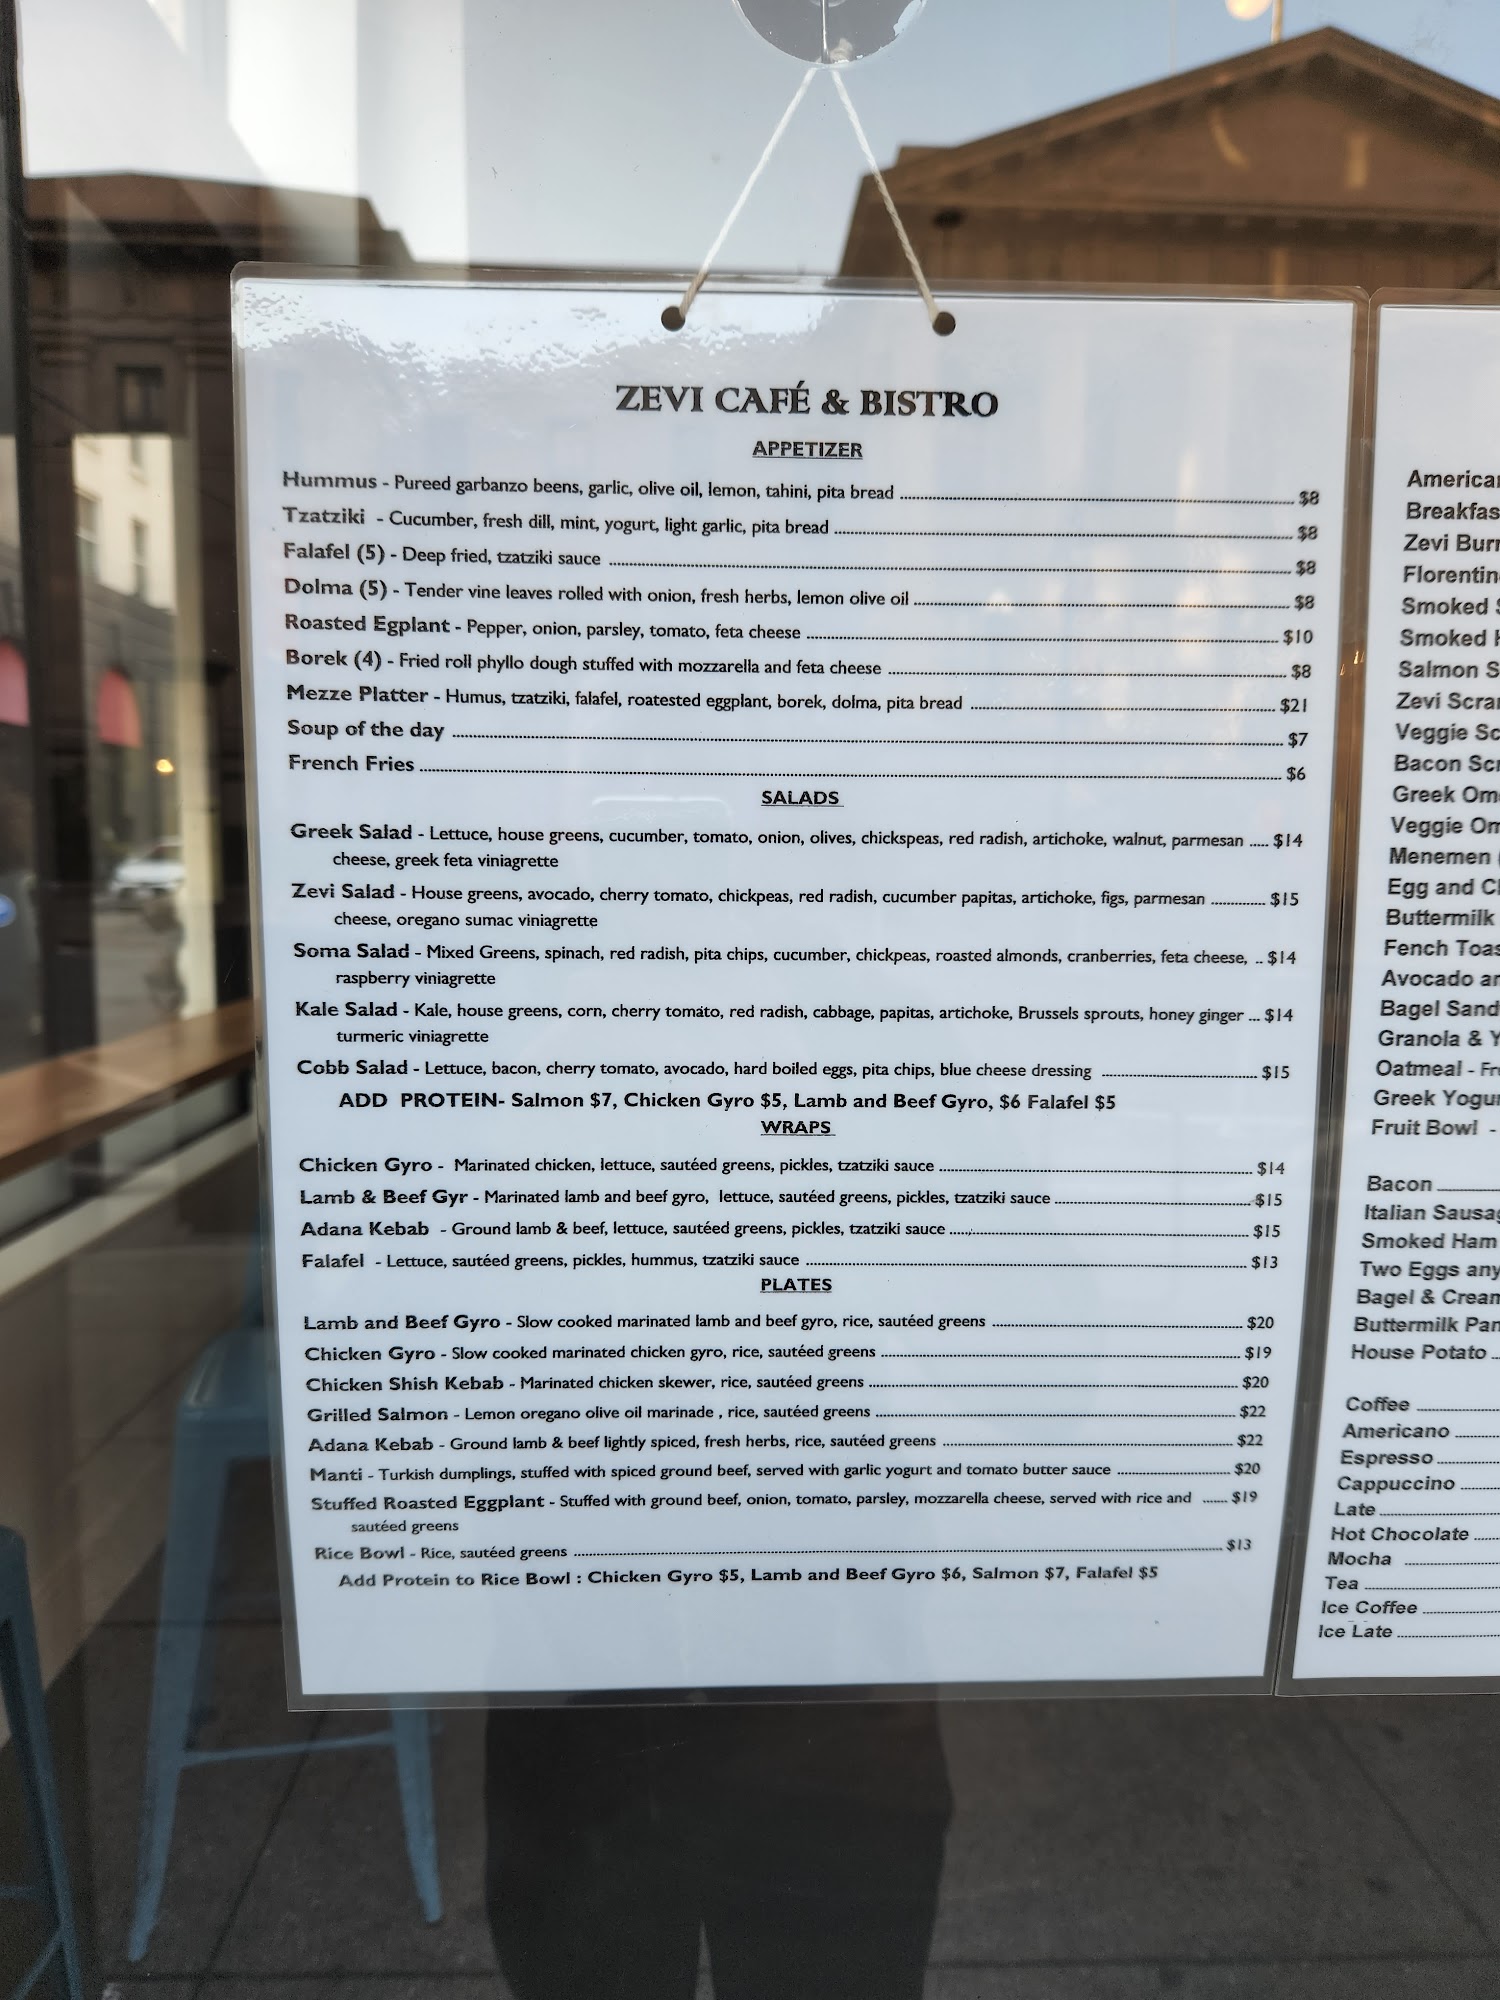 ZEVI CAFÉ & BISTRO
APPETIZER
Hummus - Pureed garbanzo beens, garlic, olive oil, lemon, tahini, pita bread $8
Tzatziki - Cucumber, fresh dill, mint, yogurt, light garlic, pita bread $8
Falafel (5) - Deep fried, tzatziki sauce $8
Dolma (5) - Tender vine leaves rolled with onion, fresh herbs, lemon olive oil $8
Roasted Egplant - Pepper, onion, parsley, tomato, feta cheese $10
Borek (4) - Fried roll phyllo dough stuffed with mozzarella and feta cheese $8
Mezze Platter - Humus, tzatziki, falafel, roatested eggplant, borek, dolma, pita bread $21
Soup of the day $7
French Fries $6
SALADS
Greek Salad - Lettuce, house greens, cucumber, tomato, onion, olives, chickspeas, red radish, artichoke, walnut, parmesan ..... $14
cheese, greek feta viniagrette
Zevi Salad - House greens, avocado, cherry tomato, chickpeas, red radish, cucumber papitas, artichoke, figs, parmesan $15
cheese, oregano sumac viniagrette
Soma Salad - Mixed Greens, spinach, red radish, pita chips, cucumber, chickpeas, roasted almonds, cranberries, feta cheese, .. $14
raspberry viniagrette
Kale Salad - Kale, house greens, corn, cherry tomato, red radish, cabbage, papitas, artichoke, Brussels sprouts, honey ginger ... $14
turmeric viniagrette
Cobb Salad - Lettuce, bacon, cherry tomato, avocado, hard boiled eggs, pita chips, blue cheese dressing $15
ADD PROTEIN- Salmon $7, Chicken Gyro $5, Lamb and Beef Gyro, $6 Falafel $5
WRAPS
Chicken Gyro - Marinated chicken, lettuce, sautéed greens, pickles, tzatziki sauce $14
Lamb & Beef Gyr - Marinated lamb and beef gyro, lettuce, sautéed greens, pickles, tzatziki sauce $15
Adana Kebab - Ground lamb & beef, lettuce, sautéed greens, pickles, tzatziki sauce $15
Falafel - Lettuce, sautéed greens, pickles, hummus, tzatziki sauce $13
PLATES
Lamb and Beef Gyro - Slow cooked marinated lamb and beef gyro, rice, sautéed greens $20
Chicken Gyro - Slow cooked marinated chicken gyro, rice, sautéed greens $19
Chicken Shish Kebab - Marinated chicken skewer, rice, sautéed greens $20
Grilled Salmon - Lemon oregano olive oil marinade , rice, sautéed greens $22
Adana Kebab - Ground lamb & beef lightly spiced, fresh herbs, rice, sautéed greens $22
Manti - Turkish dumplings, stuffed with spiced ground beef, served with garlic yogurt and tomato butter sauce $20
Stuffed Roasted Eggplant - Stuffed with ground beef, onion, tomato, parsley, mozzarella cheese, served with rice and $19
sautéed greens
Rice Bowl - Rice, sautéed greens $13
Add Protein to Rice Bowl : Chicken Gyro $5, Lamb and Beef Gyro $6, Salmon $7, Falafel $5
Zevi
Smoked
Smoked
Salmon
Zevi
Veggie
Bacon
Greek
Veggie
Menemen
Egg and
Buttermilk
Fench
Avocado
Bagel
Granola &
Oatmeal -
Greek
Fruit Bowl -
Bacon
Italian
Smoked Ham
Two Eggs
Bagel &
Buttermilk
House Potato
Coffee
Americano
Espresso
Cappuccino
Late
Hot Chocolate
Mocha
Tea
Ice Coffee
Ice Late